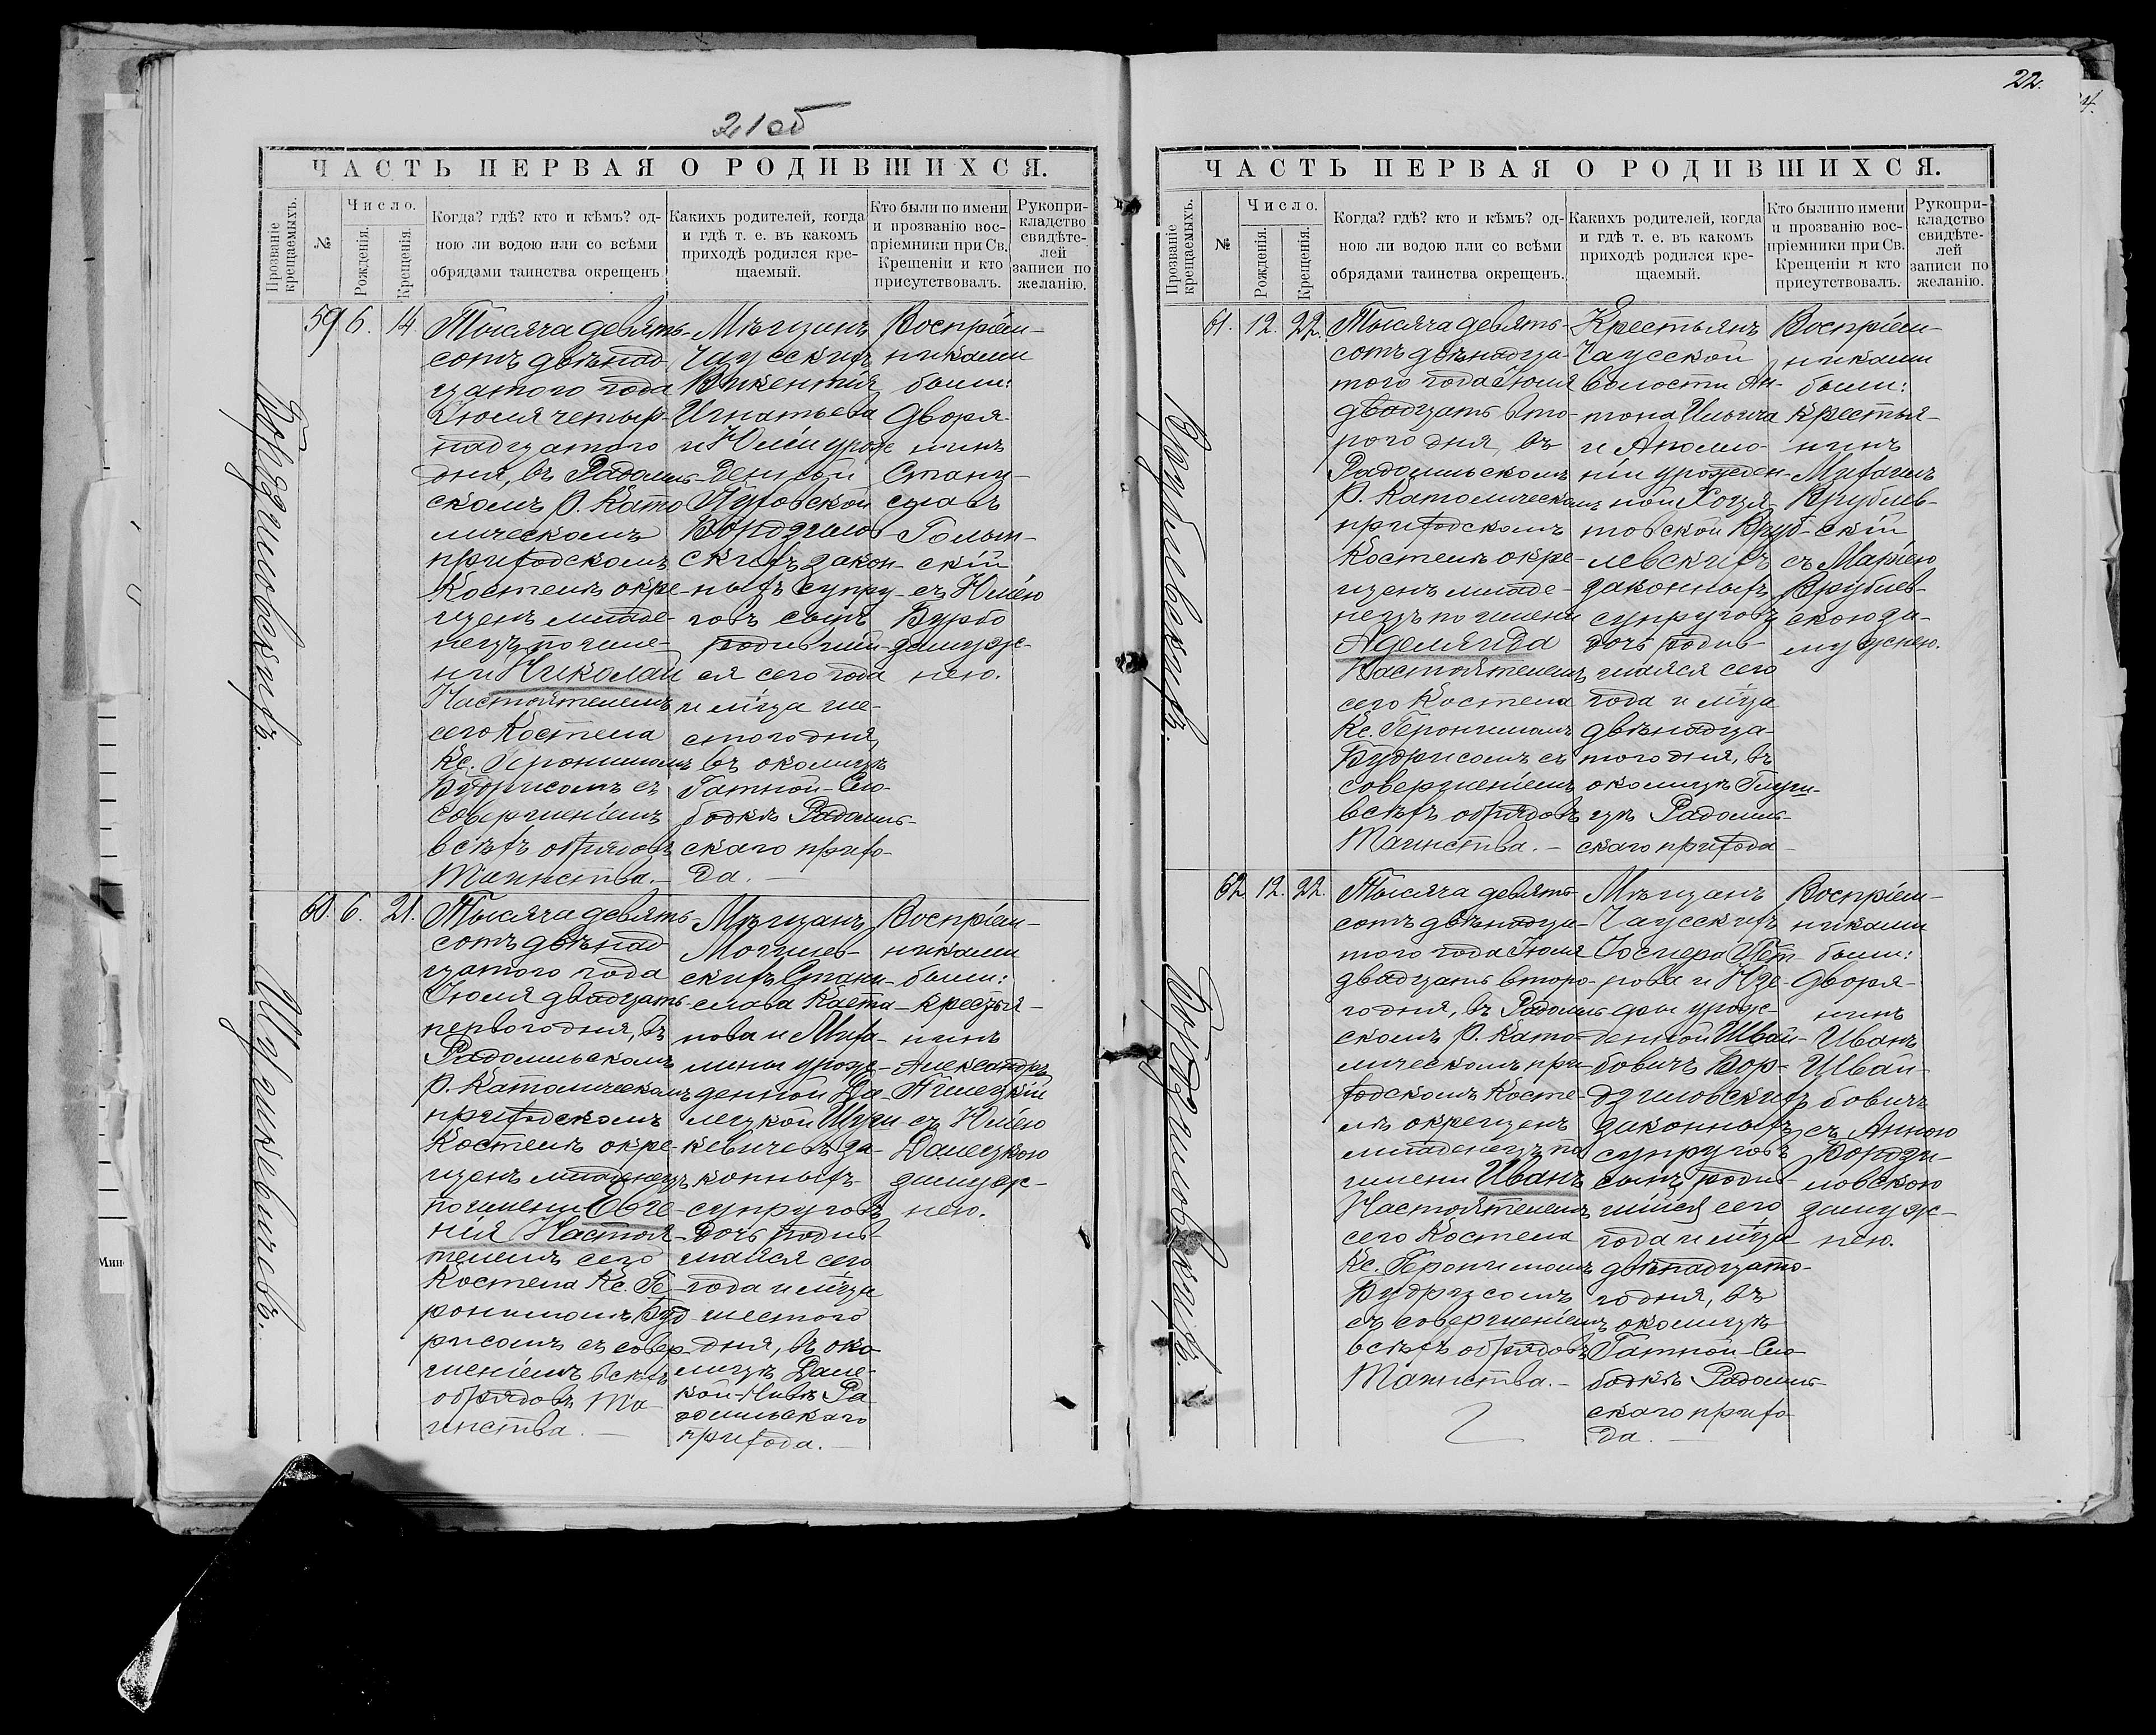 21об
ЧАСТЬ ПЕРВАЯ О РОДИВШИХСЯ.
Прозваніе крещаемыхъ.
№
Число.
Рожденія.
Крещенія.
Когда? гдѣ? кто и кѣмъ? од-
ною ли водою или со всѣми
обрядами таинства окрещенъ
Какихъ родителей, когда
и гдѣ т. е. въ какомъ
приходѣ родился кре-
щаемый.
Кто были по имени
и прозванію вос-
пріемники при Св.
Крещеніи и кто
присутствовалъ.
Рукопри-
кладство
свидѣте-
лей
записи по
желанію.
Бордзиловскихъ.
59
6.
14
Тысяча девять-
сотъ двѣнад
цатого года
Іюля четыр-
надцатого
дня, въ Радомль-
скомъ Р. Като
лическомъ
приходскомъ
Костелѣ окре-
щенъ младе-
нецъ по име-
ни Николай
Настоятелемъ
сего Костела
Кс. Іеронимомъ
Будрисомъ съ
совершеніемъ
всѣхъ обрядовъ
Таинства.—
Мѣщанъ
Чаусскихъ
Викентія
Игнатьева
и Юліи урож
денной
Бордзилов-
скихъ закон-
ныхъ супру-
говъ сынъ
родившій-
ся сего года
и м-ца ше-
стого дня,
въ околицѣ
Гатной-Сло-
бодкѣ Радомль-
скаго прихо-
да.—
Воспріем-
никами
были:
Дворя-
нинъ
Стани-
славъ
Голын-
скій
съ Юліею
Бурбо
замуж-
нею.
Шушкевичевъ.
60.
6.
21.
Тысяча девять-
сотъ двѣнад
цатого года
Іюля двадцать
перваго дня, въ
Радомльскомъ
Р. Католическомъ
приходскомъ
Костелѣ окре-
щенъ младенецъ
по имени Евге-
нія Настоя-
телемъ сего
Костела Кс. Іе-
ронимомъ Буд-
рисомъ съ совер-
шеніемъ всѣхъ
обрядовъ Та-
инства.—
Мѣщанъ
Могилев-
скихъ Стани-
слава Каета-
нова и Миха-
лины урож-
денной Да-
лецкой Шуш-
кевичевъ за-
конныхъ
супруговъ
дочь родив-
шаяся сего
года и м-ца
шестого
дня, въ око-
лицѣ Дале-
кой-Нивѣ Ра-
домльскаго
прихода.—
Воспріем-
никами
были:
крестья-
нинъ
Александръ
съ Юліею
Далецкою
замуж-
нею.
22.
ЧАСТЬ ПЕРВАЯ О РОДИВШИХСЯ.
Прозваніе крещаемыхъ.
№
Число.
Рожденія.
Крещенія.
Когда? гдѣ? кто и кѣмъ? од-
ною ли водою или со всѣми
обрядами таинства окрещенъ.
Какихъ родителей, когда
и гдѣ т. е. въ какомъ
приходѣ родился кре-
щаемый.
Кто были по имени
и прозванію вос-
пріемники при Св.
Крещеніи и кто
присутствовалъ.
Рукопри-
кладство
свидѣте-
лей
записи по
желанію.
Врублевскихъ.
61.
12.
22.
Тысяча девять-
сотъ двѣнадца-
того года Іюля
двадцать вто-
рого дня, въ
Радомльскомъ
Р. Католическомъ
приходскомъ
Костелѣ окре-
щенъ младе-
нецъ по имени
Аделяида
Настоятелемъ
сего Костела
Кс. Іеронимомъ
Будрисомъ съ
совершеніемъ
всѣхъ обрядовъ
Таинства.—
Крестьянъ
Чаусской
волости Ан-
тона Ильича
и Аполло-
ніи урожден-
ной Хоця-
товской Вруб-
левскихъ
законныхъ
супруговъ
дочь родив-
шаяся сего
года и м-ца
двѣнадца-
того дня, въ
околицѣ Глуши-
цѣ Радомль-
скаго прихода
Воспріем-
никами
были:
крестья-
нинъ
Михаилъ
Врублев-
скій
съ Маріею
Врублев-
скою за-
мужнею.
Бордзиловскихъ.
62
12.
22.
Тысяча девять-
сотъ двѣнадца-
того года Іюля
двадцать второ-
го дня, въ Радомль
скомъ Р. Като-
лическомъ при-
ходскомъ Косте-
лѣ окрещенъ
младенецъ по
имени Иванъ
Настоятелемъ
сего Костела
Кс. Іеронимомъ
Будрисомъ
съ совершеніемъ
всѣхъ обрядовъ
Таинства.—
Мѣщанъ
Чаусскихъ
Іосифа Пет-
рова и Юзе-
фы урож-
денной Швай-
бовичъ Бор-
дзиловскихъ
законныхъ
супруговъ
сынъ родив-
шійся сего
года и м-ца
двѣнадцато-
го дня, въ
околицѣ
Гатной-Сло-
бодкѣ Радомль-
скаго прихо-
да.—
Воспріем-
никами
были:
Дворя-
нинъ
Иванъ
Швай-
бовичъ
съ Анною
Бордзи-
ловскою
замуж-
нею.